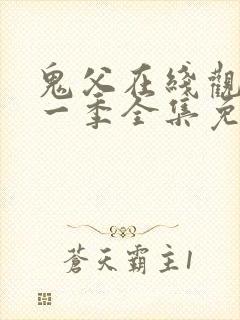 鬼父在綫觀
一季全集免
蒼天霸主1